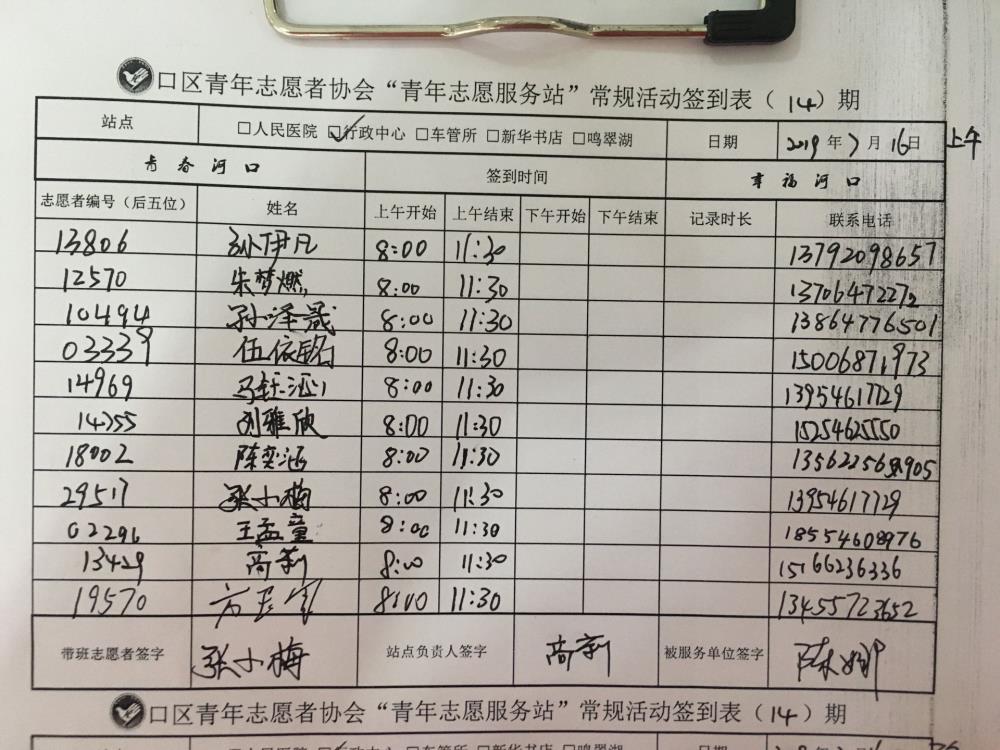 口区青年志愿者协会“青年志愿服务站”常规活动签到表（14）期
站点 □人民医院 ☑行政中心 □车管所 □新华书店 □鸣翠湖 日期 2019年7月16日 上午
青春河口 签到时间 幸福河口
志愿者编号（后五位） 姓名 上午开始 上午结束 下午开始 下午结束 记录时长 联系电话
13806 孙伊凡 8:00 11:30 13792098657
12570 朱梦燃 8:00 11:30 13706472272
10494 孙泽晟 8:00 11:30 13864776501
03339 伍依铭 8:00 11:30 15006871973
14969 马钰涵 8:00 11:30 13954617729
14355 刘雅欣 8:00 11:30 15254625550
18002 陈奕涵 8:00 11:30
29517 张小梅 8:00 11:30 13954617729
02296 王孟童 8:00 11:30 18554608976
13429 高莉 8:00 11:30 15166236336
19570 8:00 11:30 13455723652
带班志愿者签字 张小梅 站点负责人签字 高莉 被服务单位签字
口区青年志愿者协会“青年志愿服务站”常规活动签到表（14）期